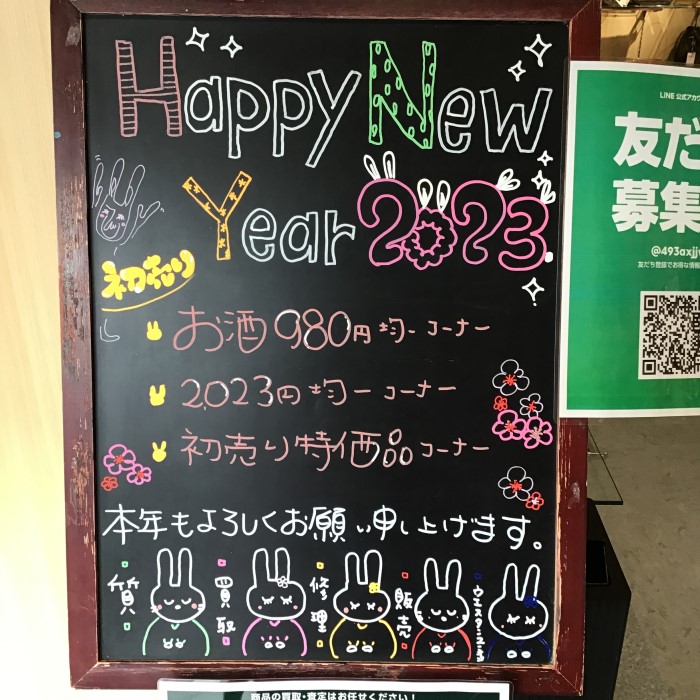 Happy New
Year 2023
初売り
お酒980円均一コーナー
2,023円均一コーナー
初売り特価品コーナー
本年もよろしくお願い申し上げます。
質
買取
修理
販売
LINE 公式アカウ
友だ
募集
@493axjj
友だち登録でお得な情報
商品の買取・査定はお任せください！